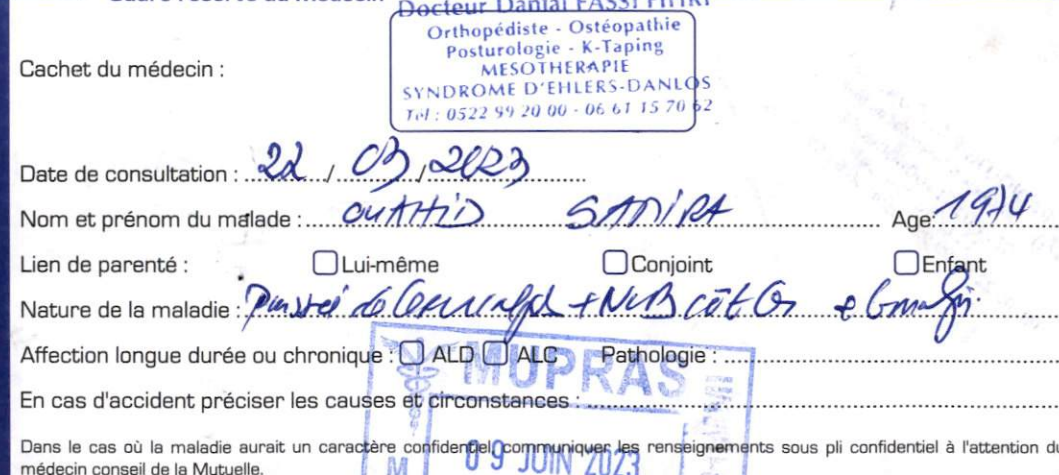 Docteur Danial FASSI FIHRI
Orthopédiste - Ostéopathie
Posturologie - K-Taping
MESOTHERAPIE
SYNDROME D'EHLERS-DANLOS
Tél : 0522 99 20 00 - 06 61 15 70 62
Cachet du médecin :
Date de consultation : 22 / 03 / 2023
Nom et prénom du malade : OUAHID SAMIRA Age: 1974
Lien de parenté : Lui-même Conjoint Enfant
Nature de la maladie : de + NCB côté G
Affection longue durée ou chronique : ALD ALC Pathologie :
MUPRAS
En cas d'accident préciser les causes et circonstances :
Dans le cas où la maladie aurait un caractère confidentiel, communiquer les renseignements sous pli confidentiel à l'attention du
médecin conseil de la Mutuelle.
09 JUIN 2023
M